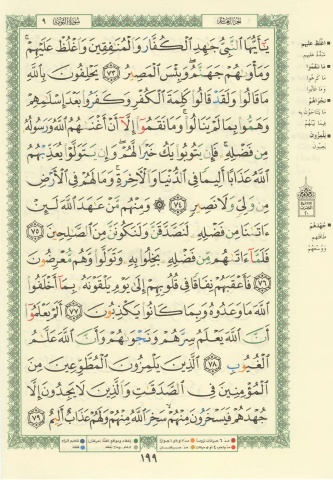 سورة التوبة ٩
الجزء العاشر
يَٰٓأَيُّهَا ٱلنَّبِيُّ جَٰهِدِ ٱلْكُفَّارَ وَٱلْمُنَٰفِقِينَ وَٱغْلُظْ عَلَيْهِمْ ۚ
وَمَأْوَىٰهُمْ جَهَنَّمُ ۖ وَبِئْسَ ٱلْمَصِيرُ ٧٣ يَحْلِفُونَ بِٱللَّهِ
مَا قَالُوا۟ وَلَقَدْ قَالُوا۟ كَلِمَةَ ٱلْكُفْرِ وَكَفَرُوا۟ بَعْدَ إِسْلَٰمِهِمْ
وَهَمُّوا۟ بِمَا لَمْ يَنَالُوا۟ ۚ وَمَا نَقَمُوٓا۟ إِلَّآ أَنْ أَغْنَىٰهُمُ ٱللَّهُ وَرَسُولُهُۥ
مِن فَضْلِهِۦ ۚ فَإِن يَتُوبُوا۟ يَكُ خَيْرًا لَّهُمْ ۖ وَإِن يَتَوَلَّوْا۟ يُعَذِّبْهُمُ
ٱللَّهُ عَذَابًا أَلِيمًا فِى ٱلدُّنْيَا وَٱلْءَاخِرَةِ ۚ وَمَا لَهُمْ فِى ٱلْأَرْضِ
مِن وَلِىٍّ وَلَا نَصِيرٍ ٧٤ ۞ وَمِنْهُم مَّنْ عَٰهَدَ ٱللَّهَ لَئِنْ
ءَاتَىٰنَا مِن فَضْلِهِۦ لَنَصَّدَّقَنَّ وَلَنَكُونَنَّ مِنَ ٱلصَّٰلِحِينَ ٧٥
فَلَمَّآ ءَاتَىٰهُم مِّن فَضْلِهِۦ بَخِلُوا۟ بِهِۦ وَتَوَلَّوا۟ وَّهُم مُّعْرِضُونَ
٧٦ فَأَعْقَبَهُمْ نِفَاقًا فِى قُلُوبِهِمْ إِلَىٰ يَوْمِ يَلْقَوْنَهُۥ بِمَآ أَخْلَفُوا۟
ٱللَّهَ مَا وَعَدُوهُ وَبِمَا كَانُوا۟ يَكْذِبُونَ ٧٧ أَلَمْ يَعْلَمُوٓا۟
أَنَّ ٱللَّهَ يَعْلَمُ سِرَّهُمْ وَنَجْوَىٰهُمْ وَأَنَّ ٱللَّهَ عَلَّٰمُ
ٱلْغُيُوبِ ٧٨ ٱلَّذِينَ يَلْمِزُونَ ٱلْمُطَّوِّعِينَ مِنَ
ٱلْمُؤْمِنِينَ فِى ٱلصَّدَقَٰتِ وَٱلَّذِينَ لَا يَجِدُونَ إِلَّا
جُهْدَهُمْ فَيَسْخَرُونَ مِنْهُمْ ۙ سَخِرَ ٱللَّهُ مِنْهُمْ وَلَهُمْ عَذَابٌ أَلِيمٌ ٧٩
اغلظ عليهم
ما نقموا
نجواهم
يلمزون
جهدهم
١٩٩